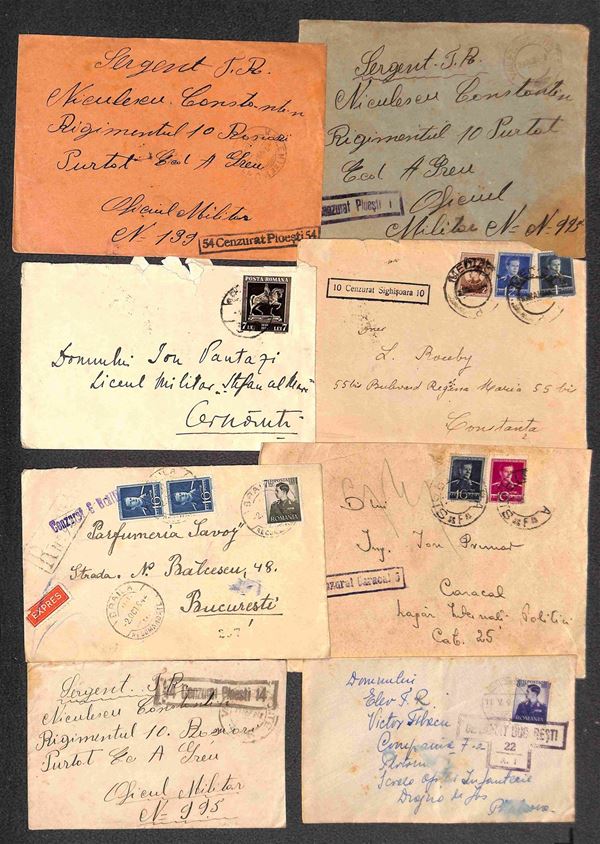 Sergent T.R.
Niculescu Constantin
Rigimentul 10 Roșiori
Purtat Ecd A Greu
Oficiul Militar
No 139
54 Cenzurat Ploești 54
Sergent T.R.
Niculescu Constantin
Rigimentul 10 Purtat
Ecd A Greu
Oficiul
Militar No No 995
Cenzurat Ploești
POSTA ROMANA
7 LEI LEI 7
Domnului Ion Pantazi
Liceul Militar „Ștefan cel Mare"
Cernăuți
10 Cenzurat Sighișoara 10
L. Rouby
55 bis Bulevard Regina Maria 55 bis
Constanța
Cenzurat
16
16
ROMANIA
BRAILA
Parfumeria "Savoy"
Strada N. Bălcescu, 48.
București
EXPRES
BRAILA
Dlui
Ing. Ion
Caracal
Lagăr Internați Politici
Cab. 25
Cenzurat Caracal 5
Sergent T.R.
Niculescu Constantin
Rigimentul 10
Purtat Ec A Greu
Oficiul Militar
No 995
14 Cenzurat Ploești 14
Domnului
Elev T.R.
Victor
Compania 7-a
ROMANIA
CENZURAT BUCUREȘTI
22
Infanterie
de Jos